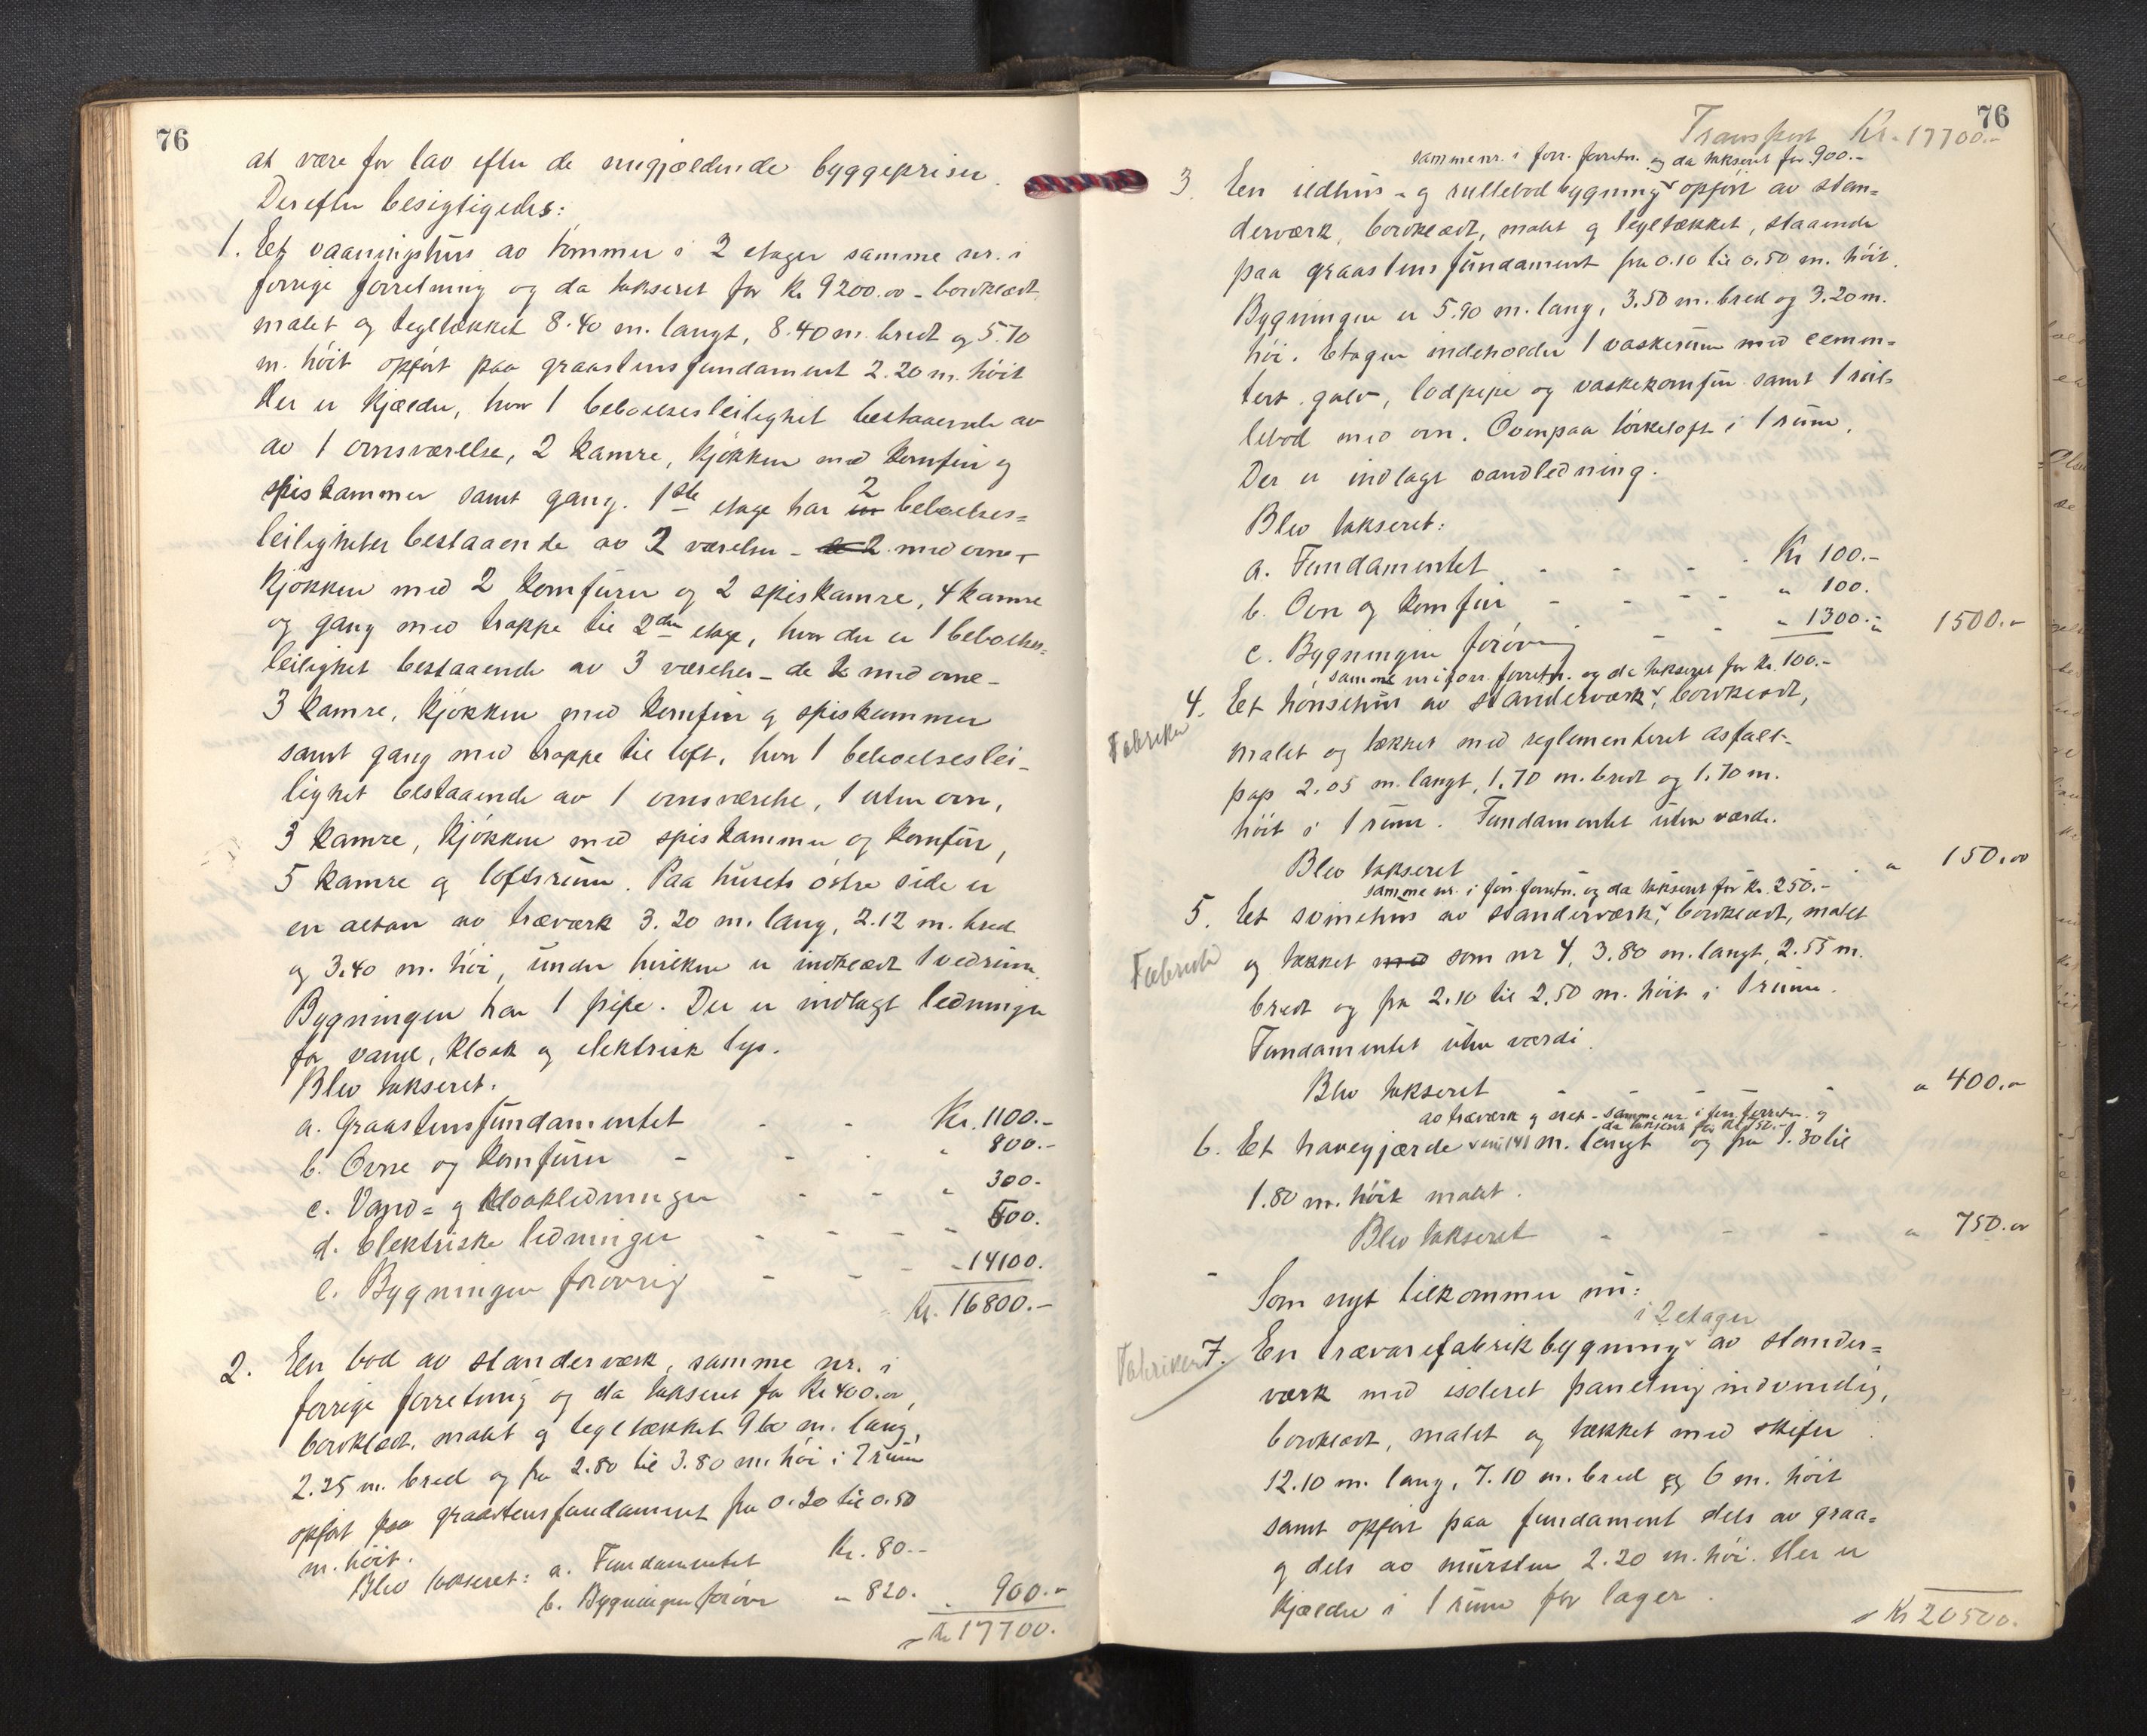 76
at være for lav efter de nugjældende byggepriser.
Derefter besigtigedes:
1. Et vaaningshus av tømmer i 2 etager samme nr. i
forrige forretning og da takseret for Kr 9200.00 - bordklædt,
malet og tegltækket 8.40 m. langt, 8.40 m. bredt og 5.70
m. høit opført paa graastensfundament 2.20 m. høit
Her er kjælder, hvor 1 beboelsesleilighet bestaaende av
av 1 ovnsværelse, 2 kamre, kjøkken med komfur og
spiskammer samt gang. 1ste etage har en 2 beboelses=
leiligheter bestaaende av 2 værelser - de 2 med ovne -
kjøkken med 2 komfurer og 2 spiskamre, 4 kamre
og gang med trappe til 2den etage, hvor der er 1 beboelses=
leilighet bestaaende av 3 værelser - de 2 med ovne -
3 kamre, kjøkken med komfur og spiskammer
samt gang med trappe til loft, hvor 1 beboelseslei-
lighet bestaaende av 1 ovnsværelse, 1 uten ovn,
3 kamre, kjøkken med spiskammer og komfur,
5 kamre og loftsrum. Paa husets østre side er
en altan av træværk 3.20 m. lang, 2.12 m. bred
og 3.40 m. høi, under hvilken er indklædt 1 vedrum.
Bygningen har 1 pipe. Der er indlagt ledninger
for vand, kloak og elektrisk lys.
Blev takseret.
a. Graastensfundamentet - - Kr. 1100.-
b. Ovne og komfurer - - - " 800.-
c. Vand= og kloakledninger - - " 300.-
d. Elektriske ledninger - - - - 500.
e. Bygningen forøvrig - - - - 14100.
Kr. 16800.-
2. En bod av standerværk, samme nr. i
forrige forretning og da takseret for Kr 400.00,
bordklædt, malet og tegltækket 9.60 m. lang,
2.25 m. bred og fra 2.80 til 3.80 m. høi i 2 rum
opført paa graastensfundament fra 0.20 til 0.50
m. høit.
Blev takseret: a. Fundamentet Kr. 80.-
b. Bygningen forøvr " 820. " 900.-
Kr 17700.
76
Transport Kr. 17700.-
samme nr. i forr. forretn. og da takseret for 900.-
3. En ildhus- og rullebodbygning opført av stan=
derværk, bordklædt, malet og tegltækket, staaende
paa graastensfundament fra 0.10 til 0.50 m. høit.
Bygningen er 5.90 m. lang, 3.50 m. bred og 3.20 m.
høi. Etagen indeholder 1 vaskerum med cemen=
tert gulv, lodpipe og vaskekomfur samt 1 rul=
lebod med ovn. Ovenpaa tørkeloft i 1 rum.
Der er indlagt vandledning.
Blev takseret:
a. Fundamentet - - - - Kr 100.-
b. Ovn og komfur - - - - " 100.
c. Bygningen forøvrig - - " 1300.- " 1500.-
samme nr i forr. forretn. og da takseret for Kr. 100.-
4. Et hønsehus av standerværk, bordklædt,
Fabriken
malet og tækket med reglementeret asfalt-
pap 2.05 m. langt, 1.70 m. bredt og 1.70 m.
høit i 1 rum. Fundamentet uten værdi.
Blev takseret - " 150.00
samme nr. i forr. forretn. og da takseret for Kr. 250.-
5. Et svinehus av standerværk, bordklædt, malet
Fabrik
og tækket med som nr 4, 3.80 m. langt, 2.55 m.
bredt og fra 2.10 til 2.50 m. høit i 1 rum.
Fundamentet uten værdi.
Blev takseret - - - - - " 400.-
av træværk og net - samme nr. i forr. forretn. og
da takseret for Kr 150.-
6. Et havegjærde nu 141 m. langt og fra 1.30 til
1.80 m. høit malet.
Blev takseret - - - " 750.00
Som nyt tilkommer nu:
i 2 etager
Fabriken 7. En trævarefabrikbygning av stander=
værk med isoleret paneling indvendig,
bordklædt, malet og tækket med skifer
12.10 m. lang, 7.10 m. bred og 6 m. høit
samt opført paa fundament dels av graa=
og dels av mursten 2.20 m. høi. Her er
kjælder i 1 rum for lager.
Kr 20500.